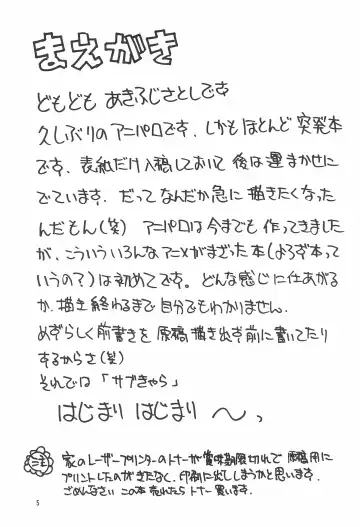 まえがき
どもども あきふじさとしです
久しぶりのアニパロです、しかもほとんど突発本
です、表紙だけ入稿しておいて後は運まかせに
でています、だってなんだか急に描きたくなった
んだもん(笑) アニパロは今までも作ってきました
が、こういういろんなアニメがまざった本(よろず本って
いうの?)は初めてです。どんな感じに仕あがる
か、描き終わるまで自分でもわかりません。
めずらしく前書きを原稿描き出す前に書いてたり
するからさ(笑)
それでは「サブきゃら」
はじまりはじまり〜っ
家のレーザープリンターのトナーが賞味期限切れで原稿用に
プリントしたのがきたなく、印刷に出してしまうかと思います、
ごめんなさい この本売れたらトナー買います、
5